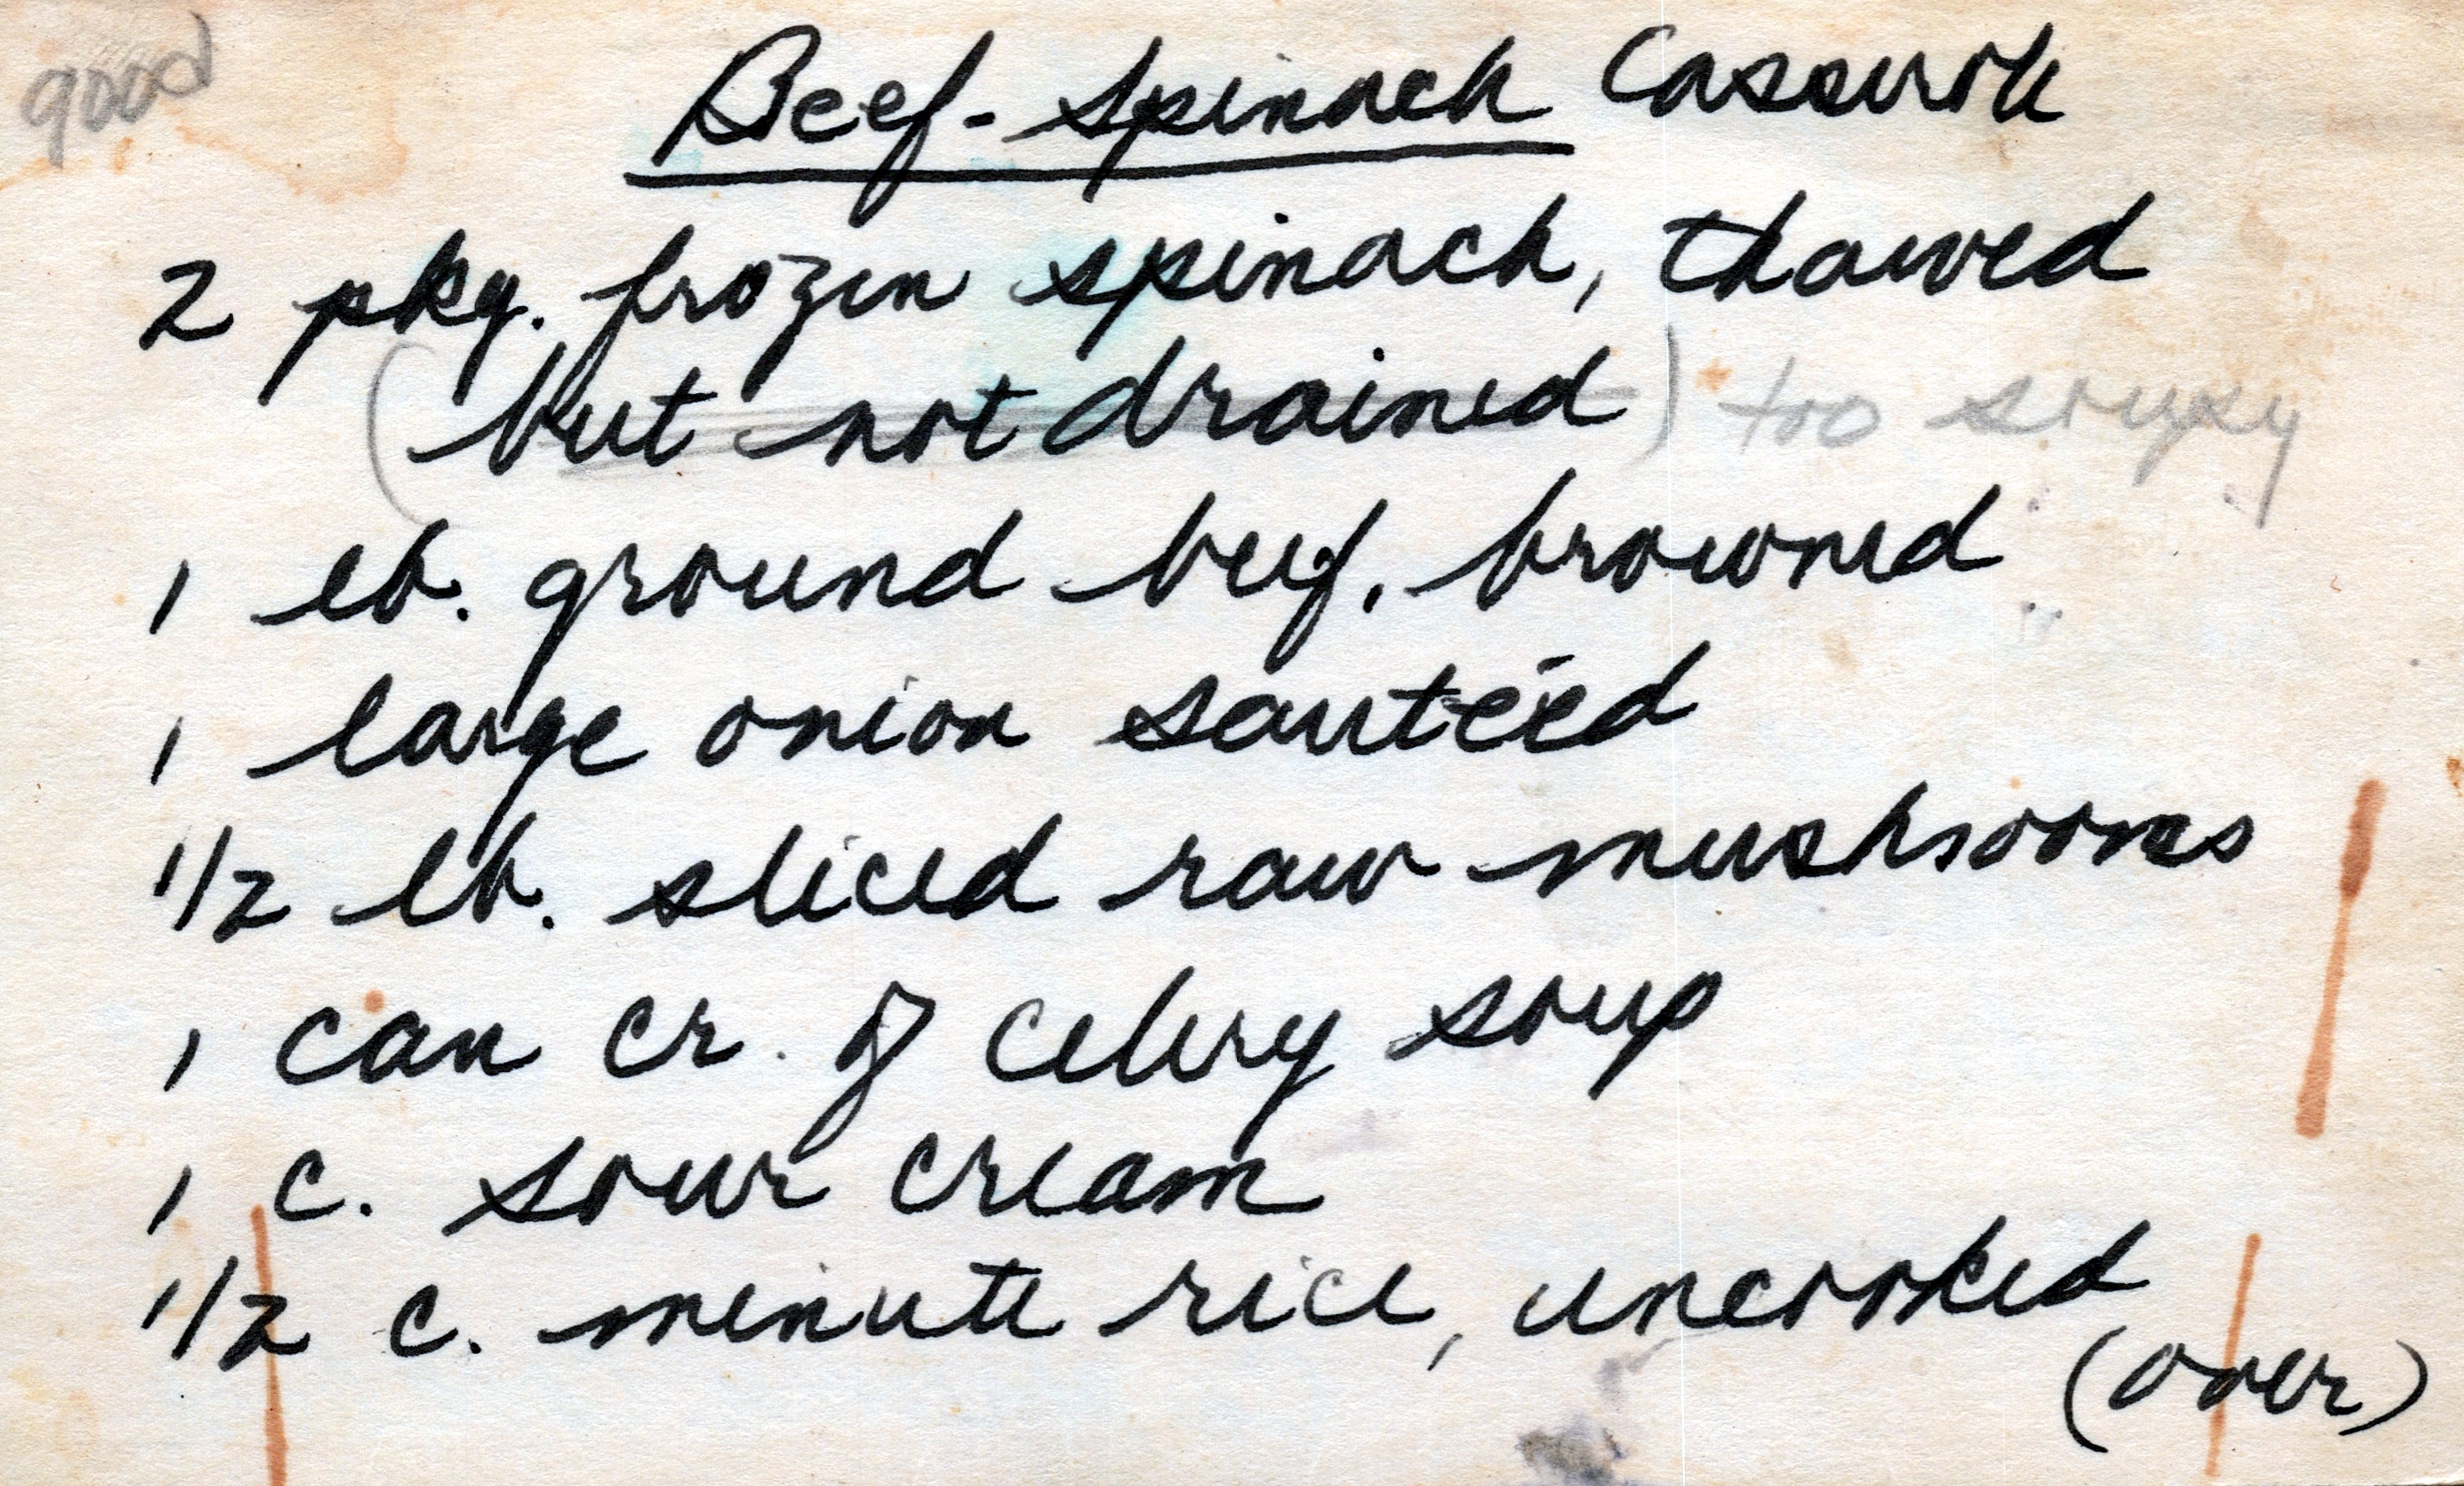 good
Beef-Spinach Casserole
2 pkg. frozen spinach, thawed
(but not drained) too soupy
1 lb. ground beef, browned
1 large onion sautéed
1/2 lb. sliced raw mushrooms
1 can cr. of celery soup
1 c. sour cream
1/2 c. minute rice, uncooked
(over)